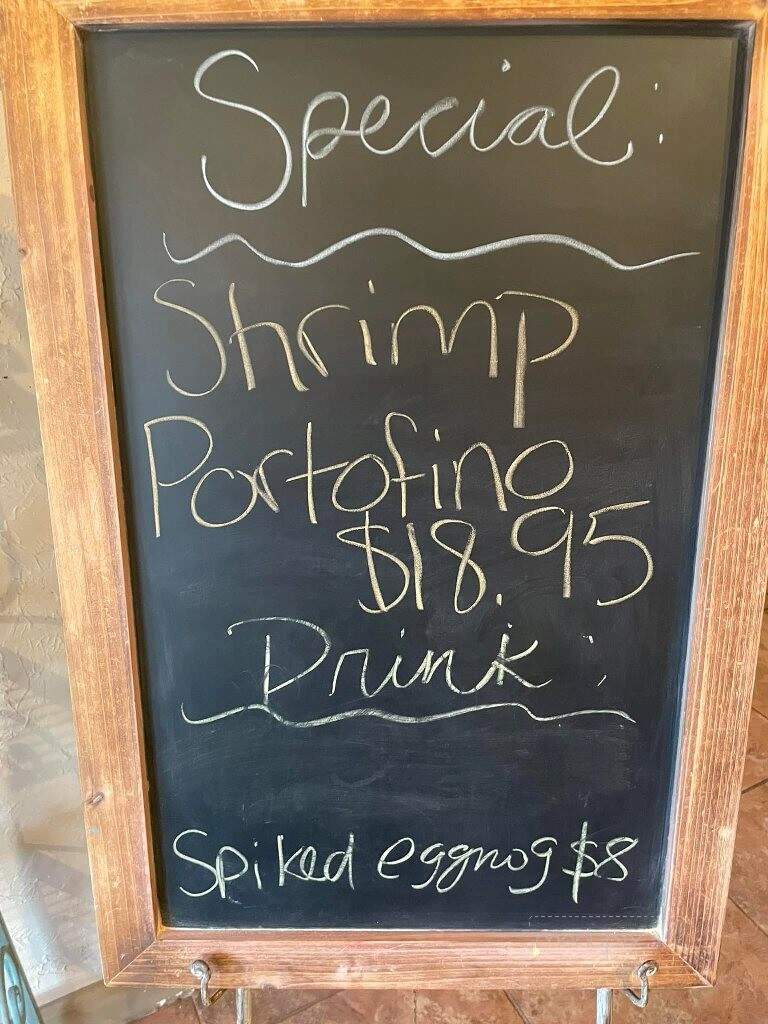 Special:
Shrimp
Portofino
$18.95
Drink:
Spiked eggnog $8